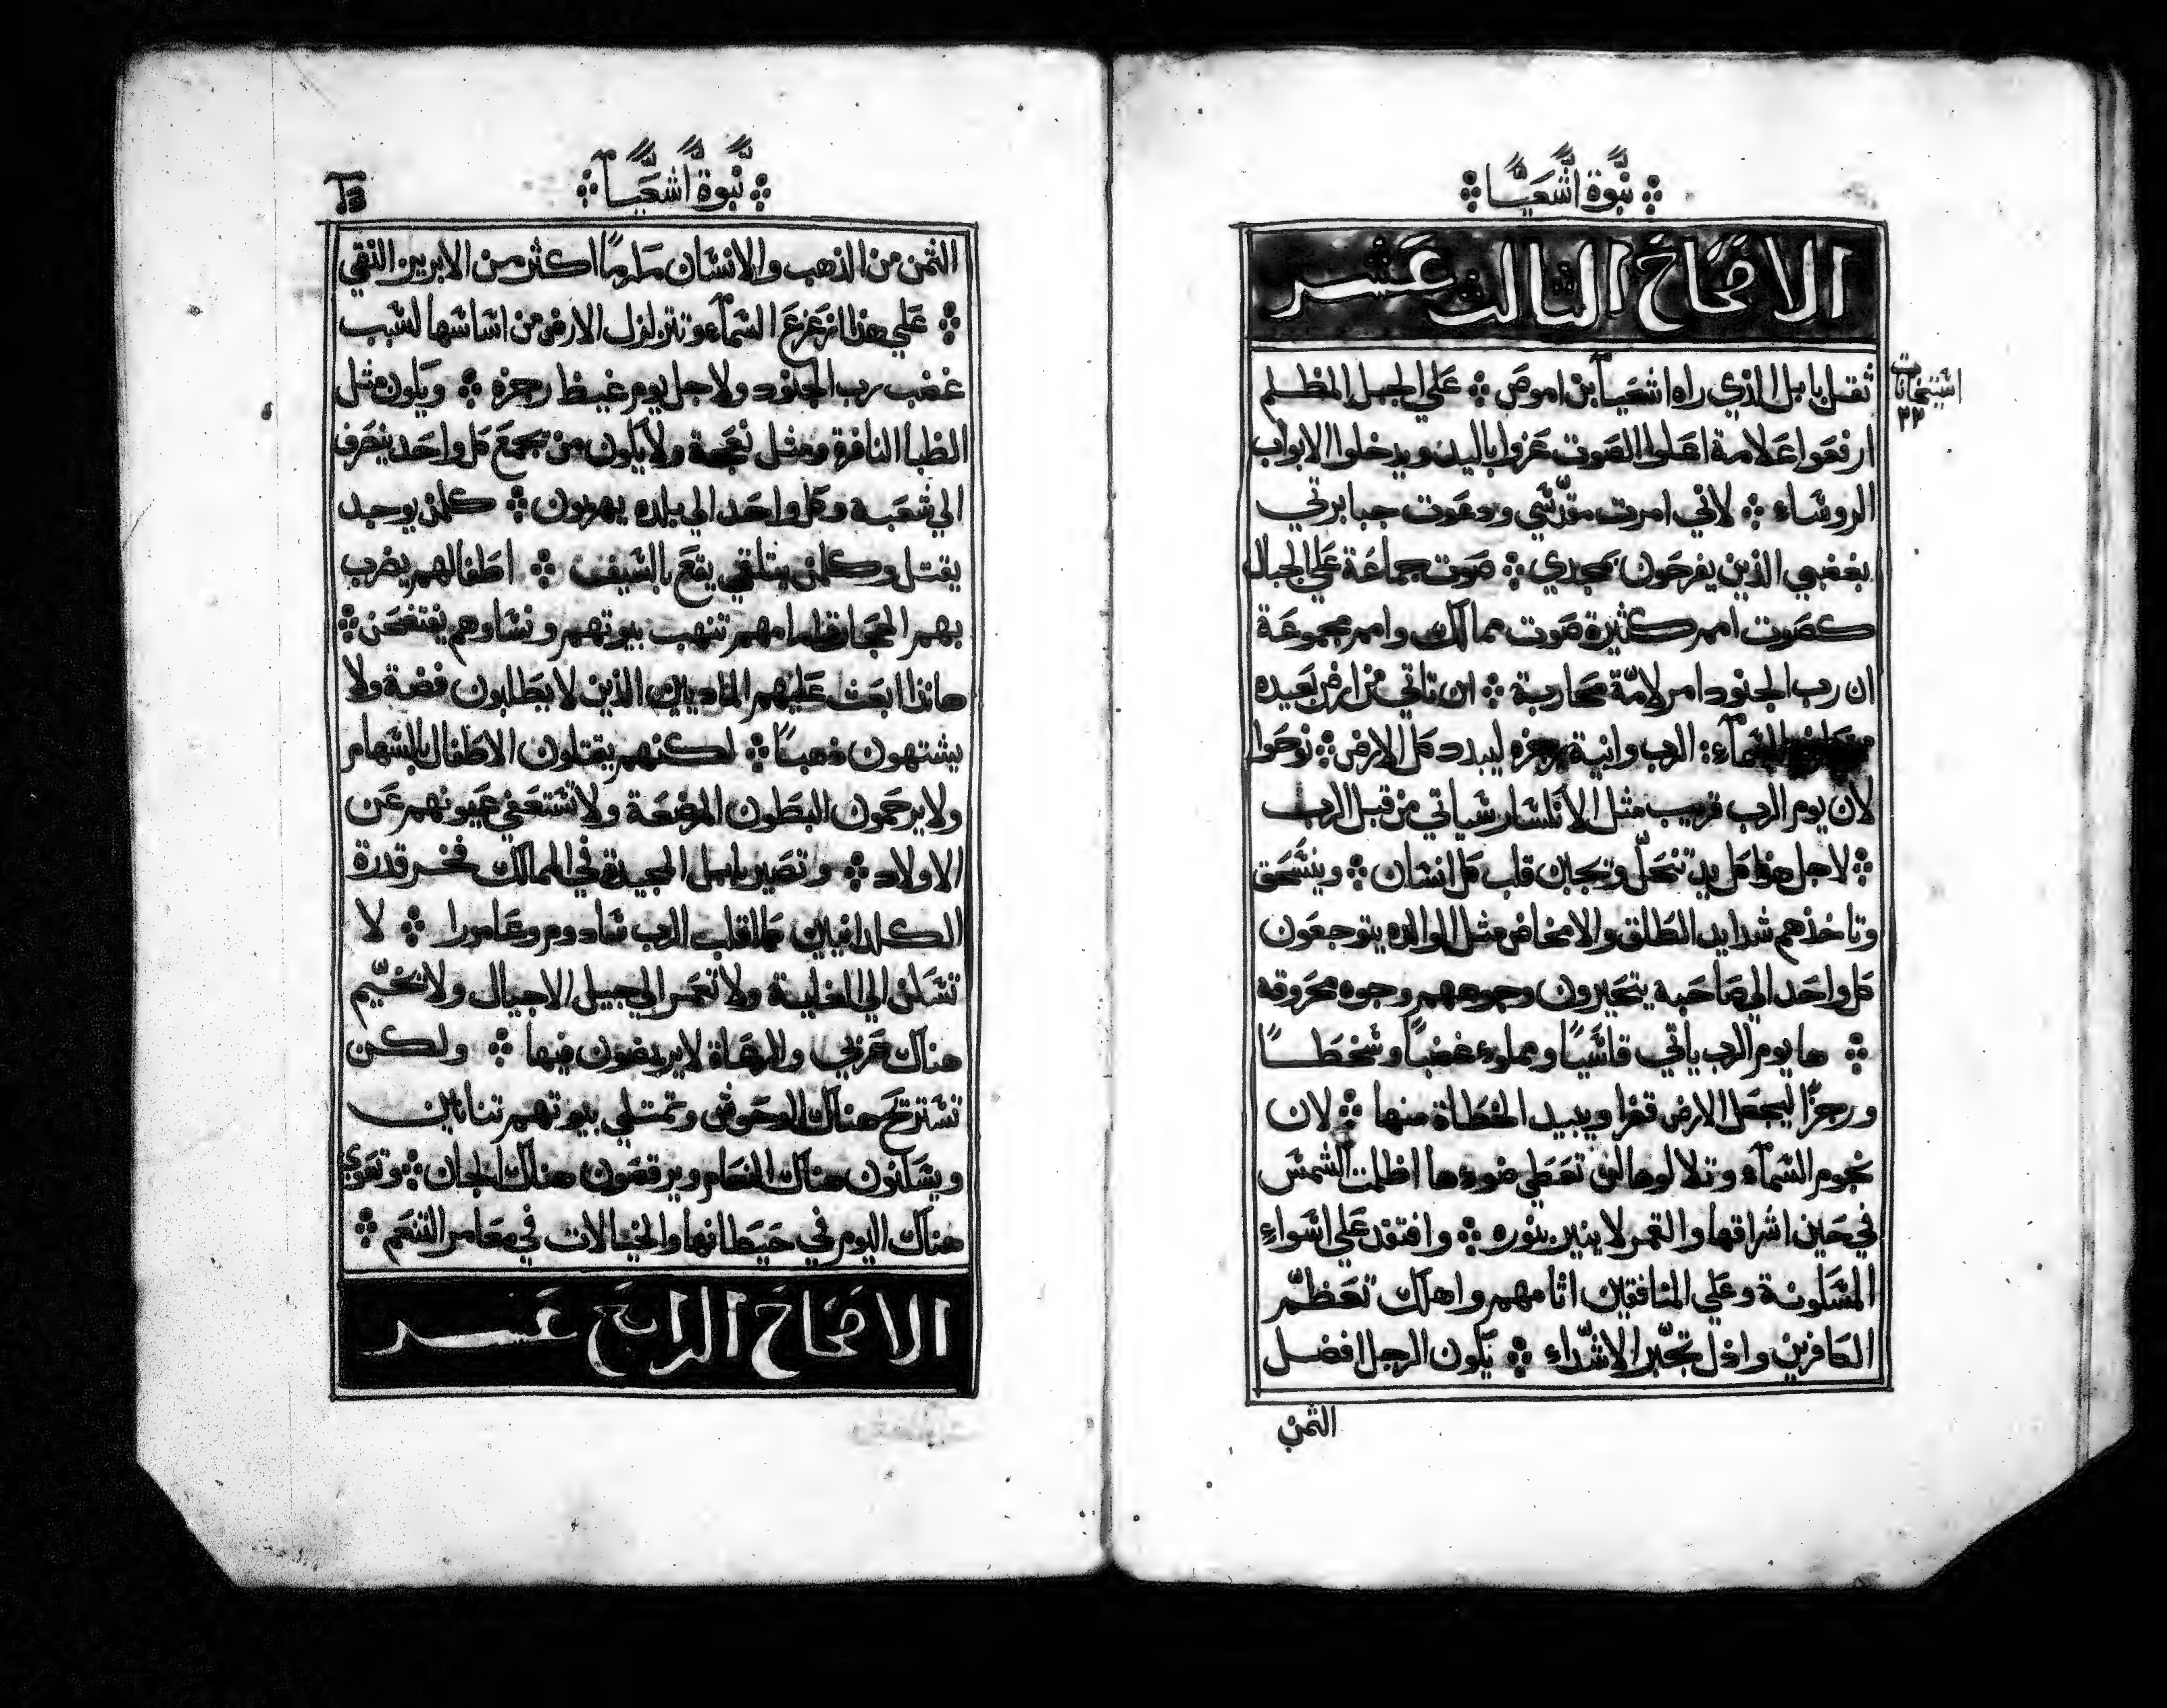 ⁘ نبوة اشعيا ⁘
الاصحاح الثالث عشر
ثقل بابل الذي راه اشعيا بن اموص ⁘ علي الجبل المظلم
استيخانات
٣٢
ارفعوا علامة اعلوا الصوت عزوا باليد ويدخلوا الابواب
الروساء ⁘ لاني امرت مقدسي ودعوت جبابرتي
بغضبي الذين يفرحون بمجدي ⁘ صوت جماعة علي الجبال
كصوت امم كثيرة صوت ممالك وامم مجموعة
ان رب الجنود امر لامة محاربة ⁘ ان تاتي من ارض بعيده
السمآء: الرب وانية رجزه ليبدد كل الارض ⁘ نوحوا
لان يوم الرب قريب مثل الانكسار سياتي من قبل الرب
⁘ لاجل هذا كل يد تنحل وتجبن قلب كل انسان ⁘ وينسحق
وتاخذهم شدايد الطلق والامخاض مثل الوالده يتوجعون
كل واحد الي صاحبه يتحيرون وجوههم وجوه محروقه
⁘ ها يوم الرب ياتي قاسيًا ومملوء غضبًا وسخطًا
ورجزًا ليجعل الارض قفرا ويبيد الخطاة منها ⁘ لان
نجوم السمآء وتلالوها لن تعطي ضوءها اظلمت الشمس
في حين اشراقها والقمر لا ينير بنوره ⁘ وافتقد علي اسواء
المسكونة وعلي المنافقين اثامهم واهلك تعظم
الكافرين واذل تجبر الاشداء ⁘ يكون الرجل افضل
الثمن
⁘ نبوة اشعيا ⁘
الثمن من الذهب والانسان مكرمًا اكثر من الابريز النقي
⁘ علي هذا ازعزع السمآء وتتزلزل الارض من اساسها لسبب
غضب رب الجنود ولاجل يوم غيظ رجزه ⁘ ويكون مثل
الظبا النافرة ومثل نعجة ولا يكون من يجمع كل واحد ينصرف
الي شعبه وكل واحد الي بلده يهربون ⁘ كلمن يوجد
يقتل وكلمن يتلقي يقع بالسيف ⁘ اطفالهم يضرب
بهم الحجارة قدامهم تنهب بيوتهم ونساوهم يفتضحن ⁘
هانذا ابعث عليهم الماديين الذين لا يطلبون فضة ولا
يشتهون ذهبًا ⁘ لكنهم يقتلون الاطفال بالسهام
ولا يرحمون البطون المرضعة ولا تستعفي عيونهم عن
الاولاد ⁘ وتصير بابل المجيدة في الممالك فخر قدرة
الكلدانيين كما اقلب الرب سادوم وعامورا ⁘ لا
تسكن الي الغاية ولا تعمر الي جيل الاجيال ولا تخيم
هناك عربي والرعاة لا يربضون فيها ⁘ ولكن
تستريح هناك الوحوش وتمتلي بيوتهم تنانين
ويسكنون هناك النعام ويرقصون هناك الجان ⁘ وتعوي
هناك البوم في حيطانها والخيالات في معاصر التنعم ⁘
الاصحاح الرابع عشر